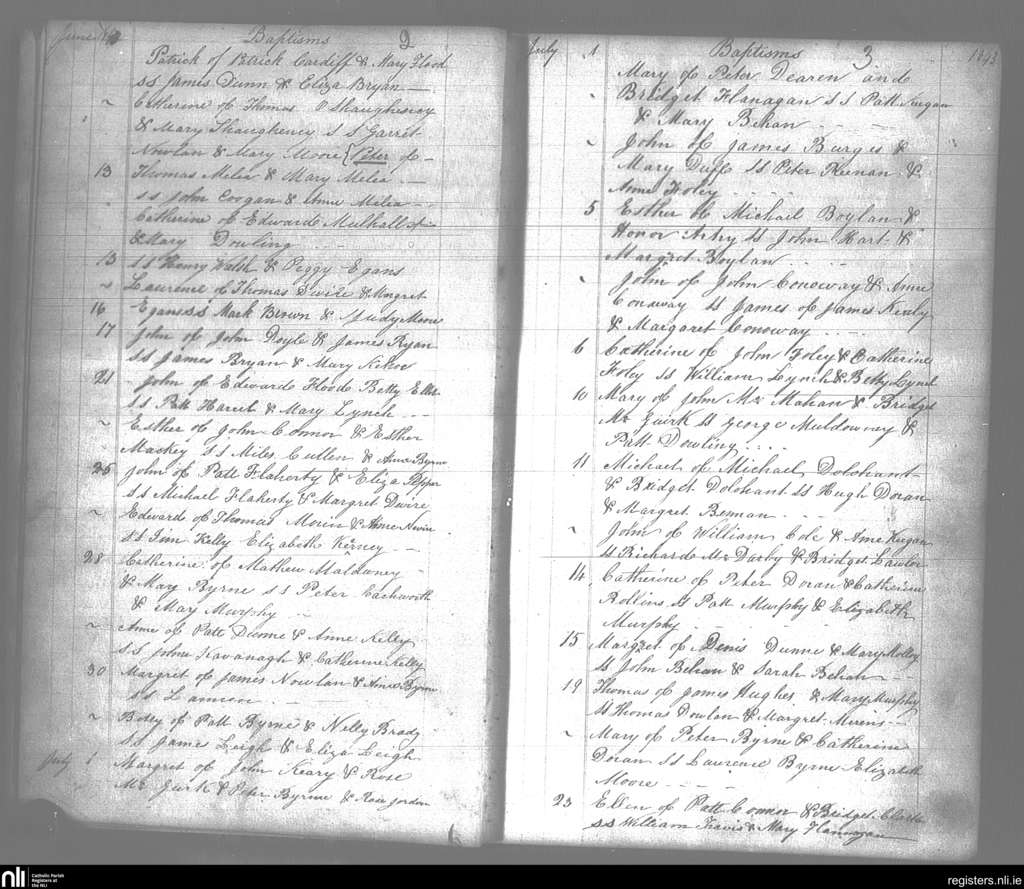 June
Baptisms 2
Patrick of Patrick Cardiff & Mary Flood
SS James Dunn & Eliza Bryan
" Catherine of Thomas O Shaughnesay
& Mary Shaugheney SS Garret
Nowlan & Mary Moore { Peter of
13 Thomas Melia & Mary Melia
SS John Coogan & Anne Melia
Catherine of Edward Mulhall
& Mary Dowling
13 SS Henry Walsh & Peggy Egans
" Laurence of Thomas Dwire & Margret
16 Egans SS Mark Brown & Judy Moore
17 John of John Doyle & James Ryan
SS James Bryan & Mary Kehoe
21 John of Edward Flood Betty
SS Patt & Mary Lynch
" Esther of John Connor & Esther
Mackey SS Miles Cullen & Anne Byrne
25 John of Patt Flaherty & Eliza
SS Michael Flaherty & Margret Dwire
" Edward of Thomas & Anne
SS Jim Kelly Elizabeth Kerney
28 Catherine of Mathew Maldaney
& Mary Byrne SS Peter
& May Murphy
" Anne of Patt Dunne & Anne Kelly
SS John Kavanagh & Catherine Kelly
30 Margret of James Nowlan & Anne Byrne
SS
" Betty of Patt Byrne & Nelly Brady
SS Jame Leigh & Eliza Leigh
July 1 Margret of John Keary & Rose
Mc & Peter Byrne & Rose Jordan
July 1 Baptisms 3 1843
Mary of Peter Dearen and
" Bridget Flanagan SS Patt Keegan
& Mary Behan
" John of James Burges &
Mary Duff SS Peter Keenan &
Anne Foley
5 Esther of Michael Boylan &
Honor SS John Hart &
Margret Boylan
" John of John Conoway & Anne
Conoway SS James of James Kealy
& Margaret Conoway
6 Catherine of John Foley & Catherine
Foley SS William Lynch & Betty Lynch
10 Mary of John Mc Mahan & Bridget
Mc Guirk SS George Muldowney &
Patt Dowling
11 Michael of Michael Dolohant
& Bridget Dolohant SS Hugh Doran
& Margret Bennan
" John of William Cole & Anne Keegan
SS Richard Mc Darby & Bridget Lawlor
14 Catherine of Peter Doran & Catherine
Rollins SS Patt Murphy & Elizabeth
Murphy
15 Margret of Denis Dunne & Mary Molloy
SS John Behan & Sarah Behan
19 Thomas of James Hughes & Mary Murphy
SS Thomas Dowlan & Margret
" Mary of Peter Byrne & Catherine
Doran SS Laurence Byrne Elizabeth
Moore
23 Ellen of Patt Connor & Bridget Clarke
SS William Travis & Mary Flannagan
nli Catholic Parish
Registers at
the NLI
registers.nli.ie